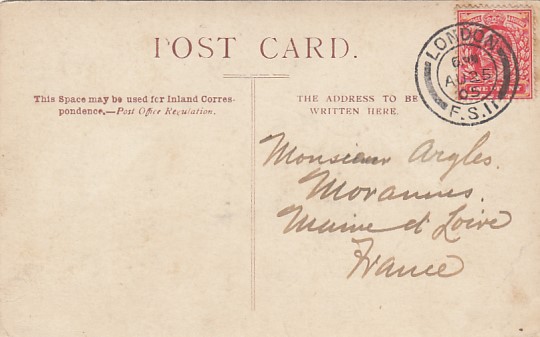 POST CARD.
This Space may be used for Inland Corres-
pondence.—Post Office Regulation.
THE ADDRESS TO BE
WRITTEN HERE.
LONDON
AU 25
05
F.S. 11
Monsieur Argles.
Morannes.
Maine et Loire
France